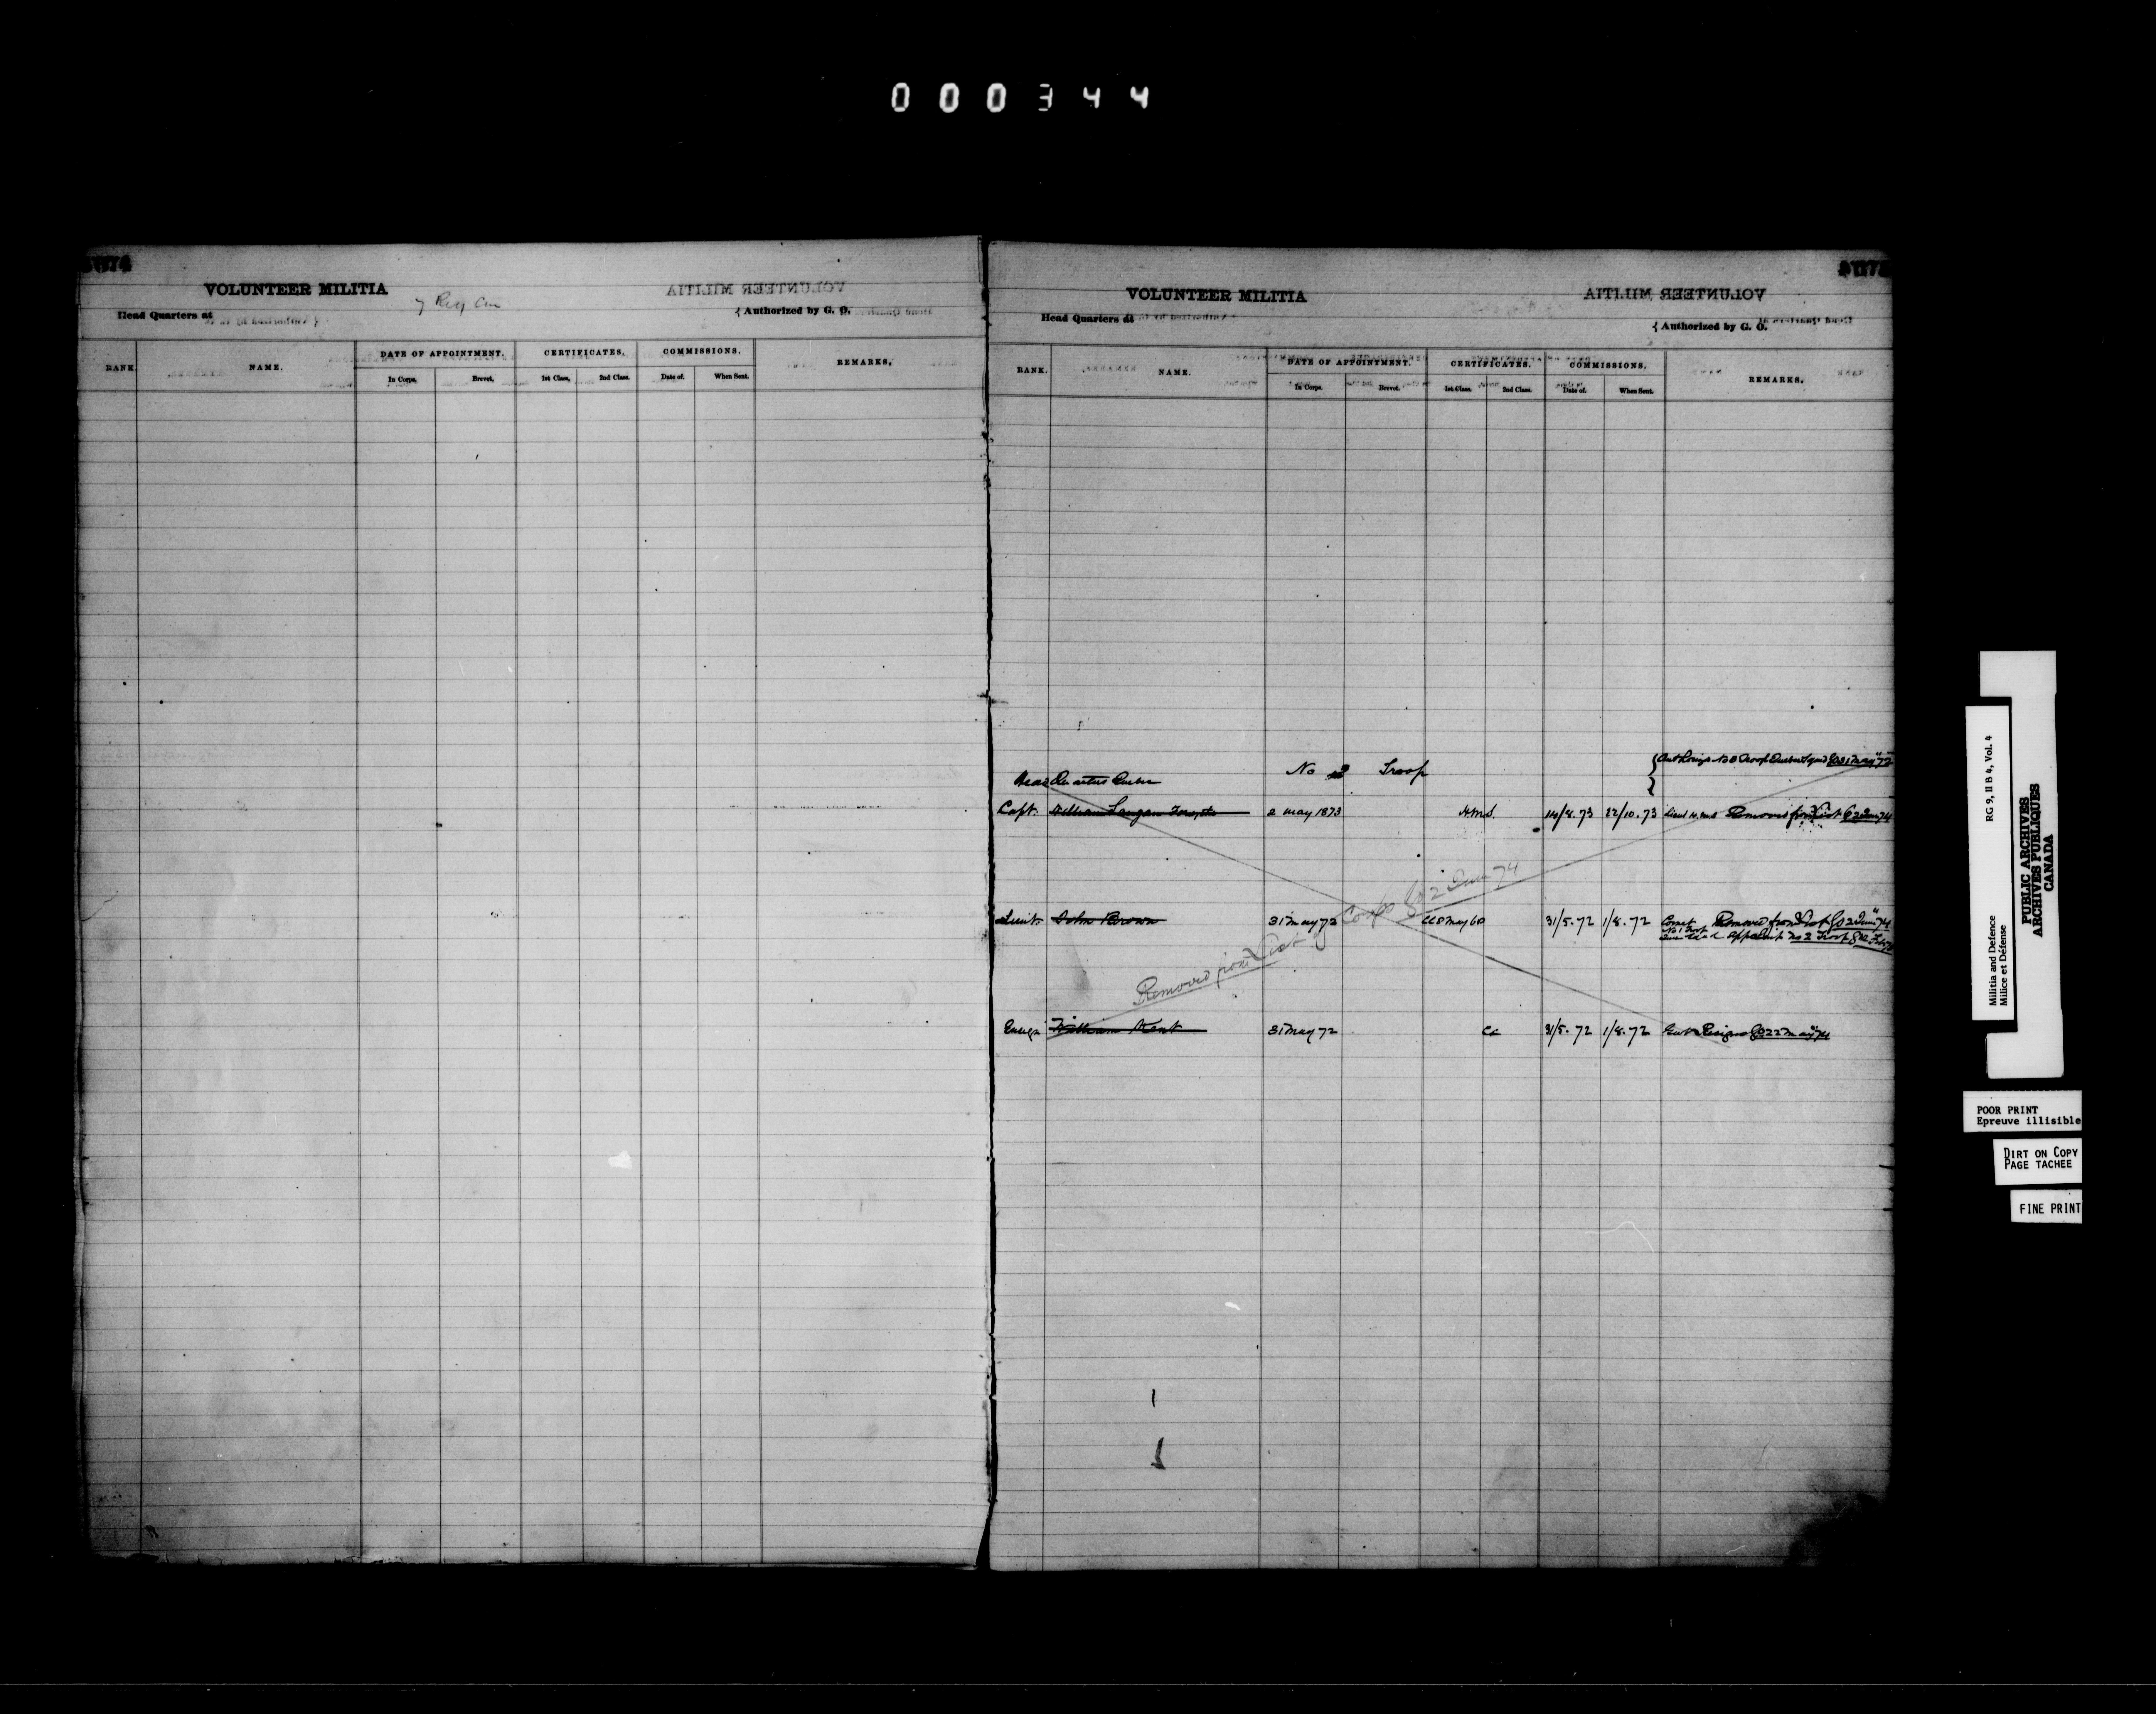 000344
VOLUNTEER MILITIA
Head Quarters at
Authorized by G. O.
RANK. NAME. DATE OF APPOINTMENT. CERTIFICATES. COMMISSIONS. REMARKS.
In Corps. Brevet. 1st Class. 2nd Class. Date of. When Sent.
VOLUNTEER MILITIA
Head Quarters at
{ Authorized by G. O.
RANK. NAME. DATE OF APPOINTMENT. CERTIFICATES. COMMISSIONS. REMARKS.
In Corps. Brevet. 1st Class. 2nd Class. Date of. When Sent.
Head Quarters Quebec No Troop
Capt. William Langan Forsyth 2 May 1873 H.M.S. 14/8.73 22/10.73 Removed from List 2 June 74
Lieut. John Brown 31 May 72 31/5.72 1/8.72 Removed from List GO 2 June 74
No 2 Troop
Removed from List of Corps GO 2 June 74
Ensign William Kent 31 May 72 31/5.72 1/8.72 Resigned GO 22 May 74
RG 9, II B 4, Vol. 4
Militia and Defence
Milice et Défense
PUBLIC ARCHIVES
ARCHIVES PUBLIQUES
CANADA
POOR PRINT
Epreuve illisible
DIRT ON COPY
PAGE TACHEE
FINE PRINT